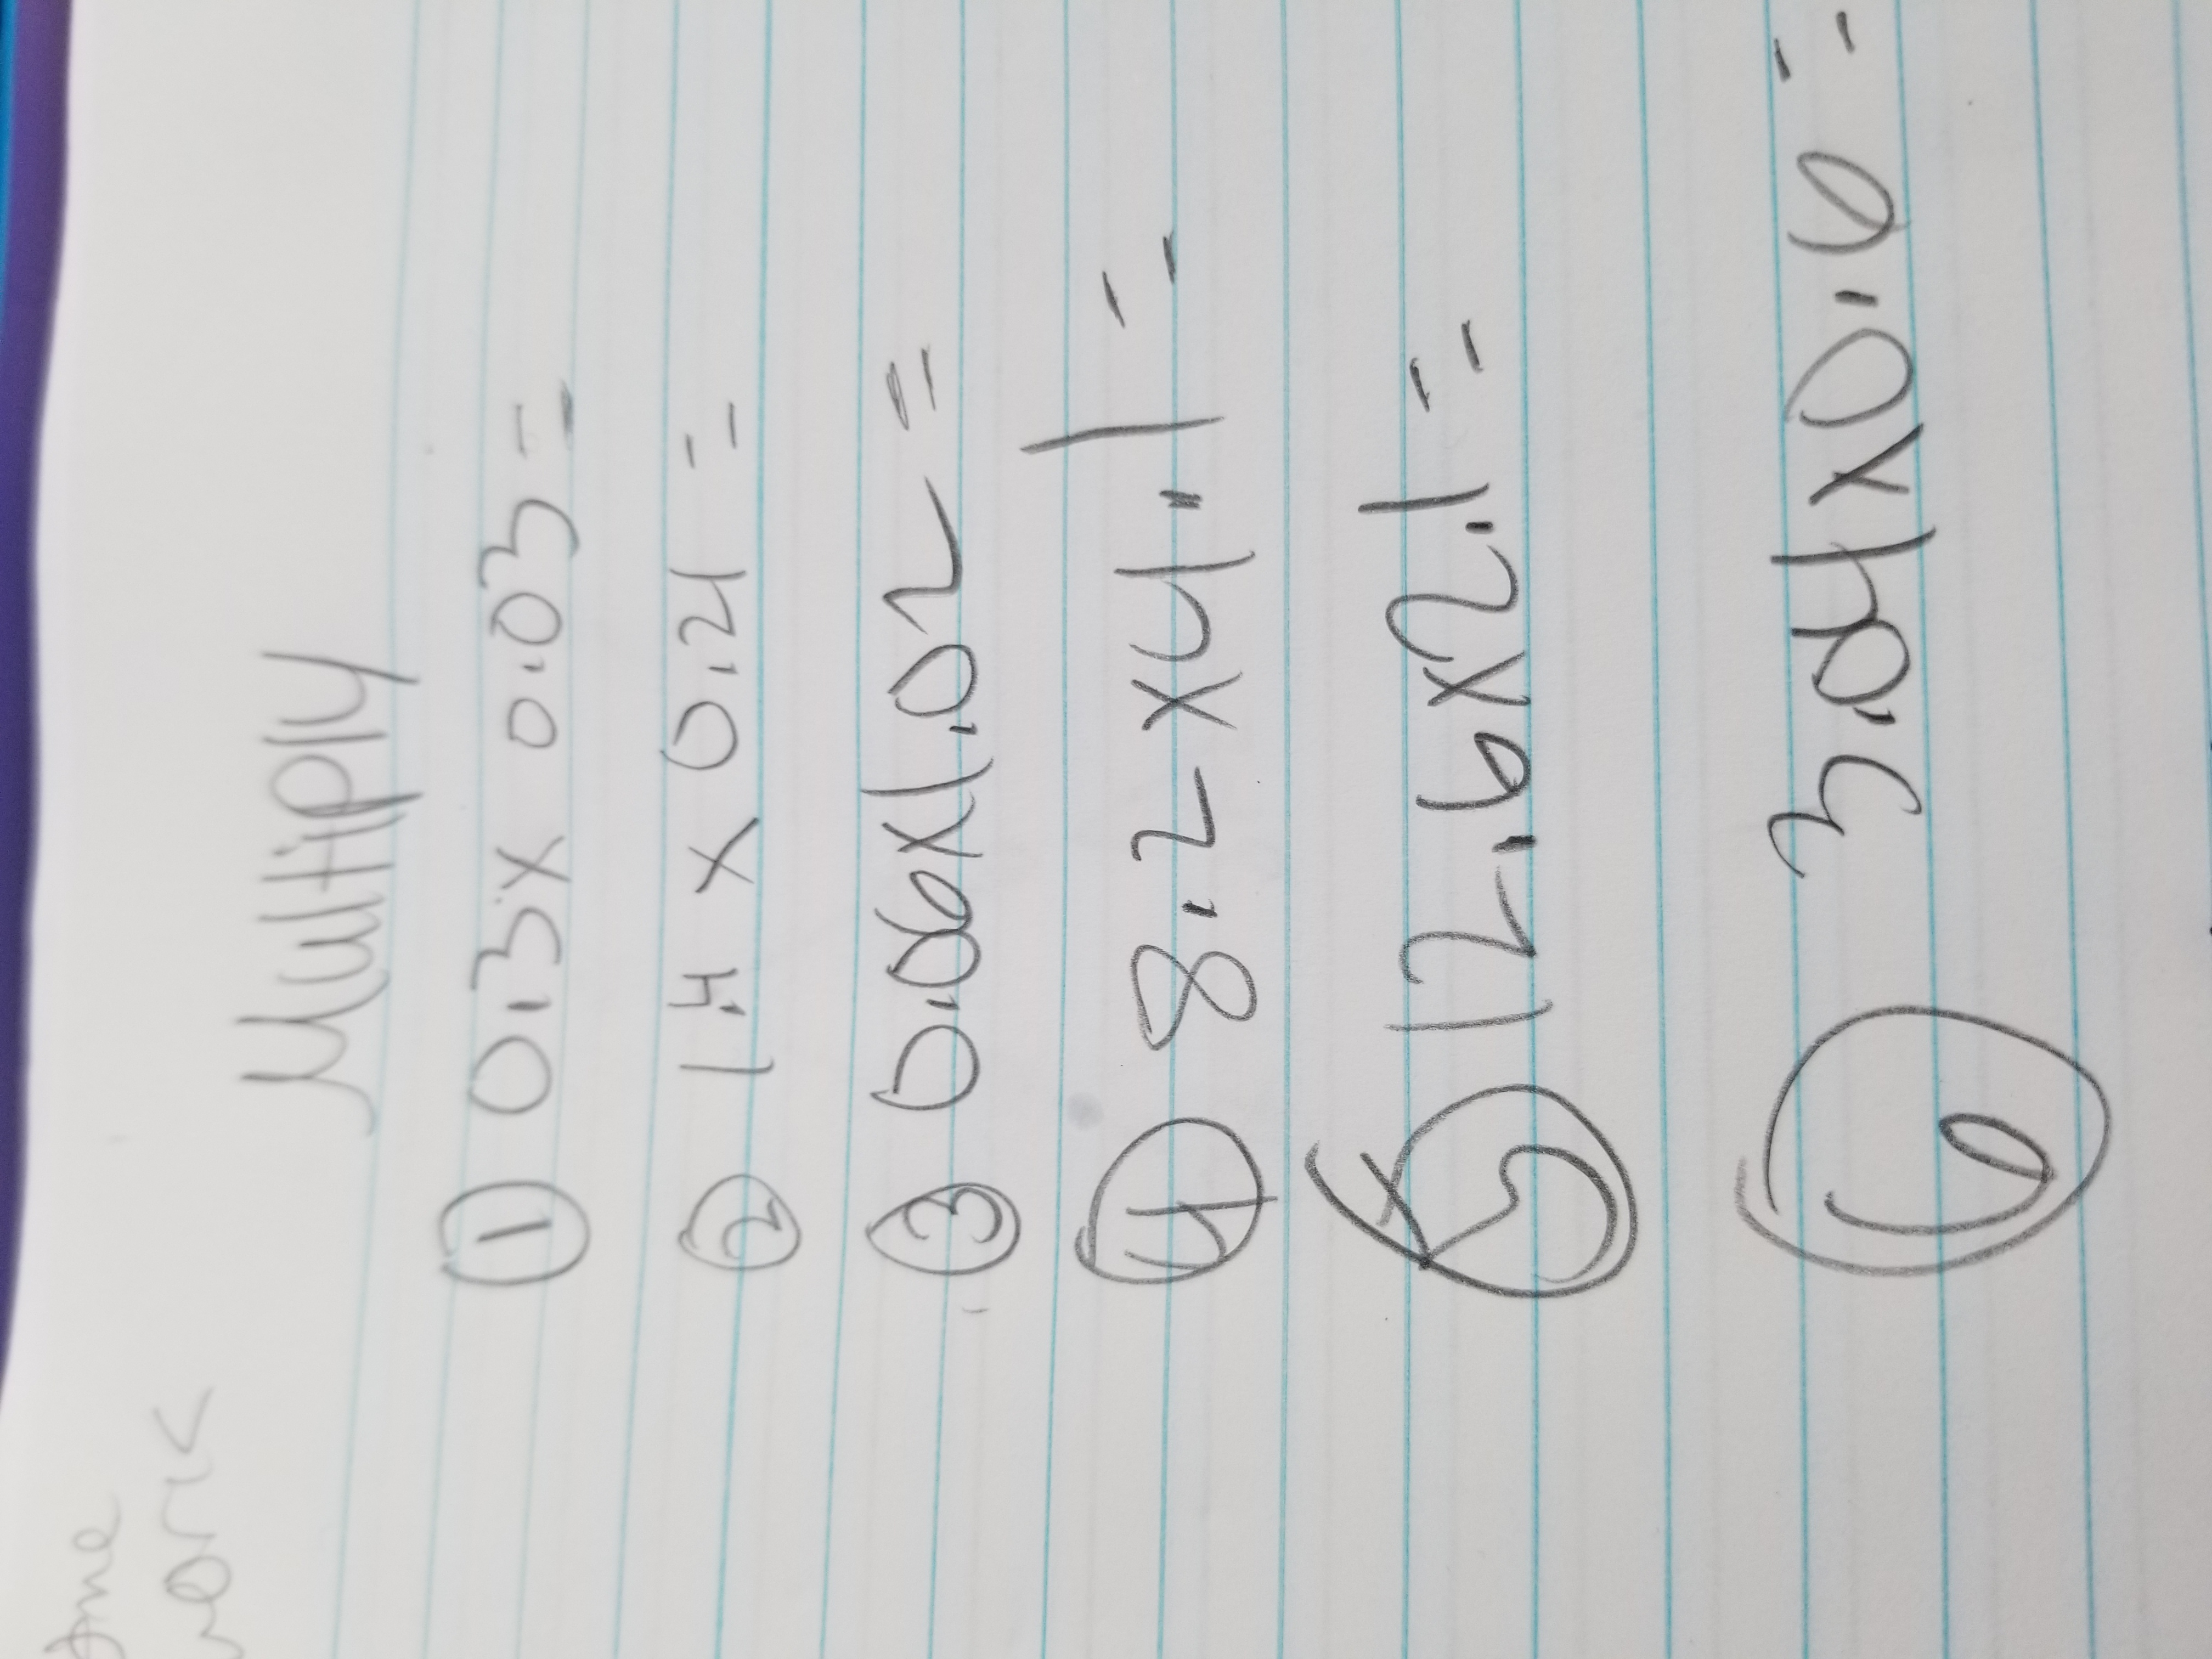 Home
work
Multiply
① 0.3 x 0.03 =
② 1.4 x 0.21 =
③ 0.06 x 1.02 =
④ 8.2 x 4.1 =
⑤ 12.6 x 2.1 =
⑥ 3.04 x 0.6 =